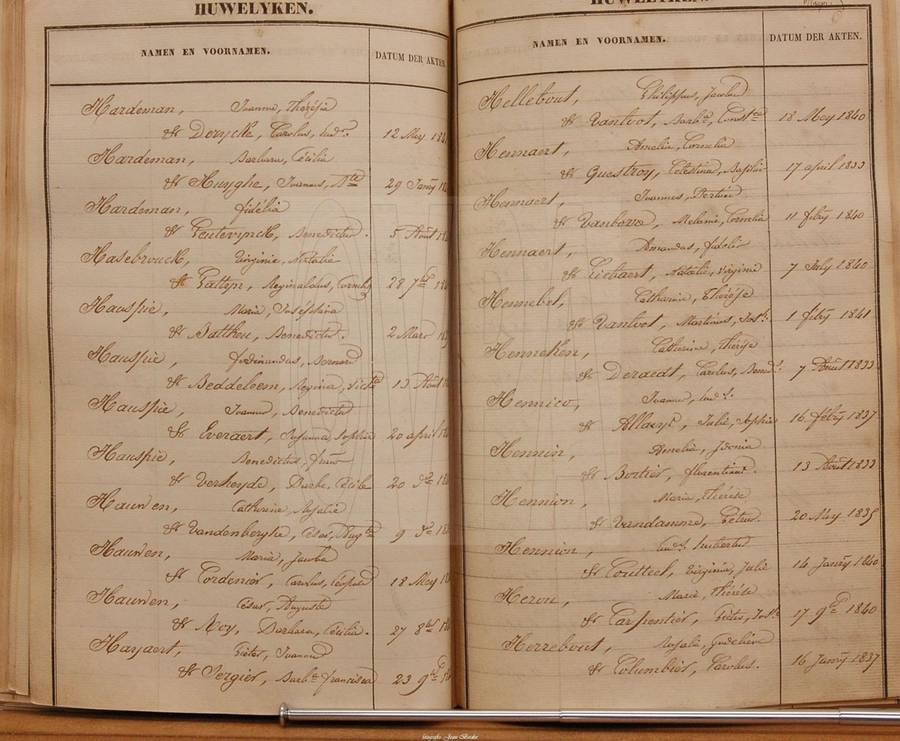 HUWELYKEN.
NAMEN EN VOORNAMEN. DATUM DER AKTEN.
Hardeman, Joanna, Thérésia
& Deuycke, Carolus, Lud.s 12 Mey
Hardeman, Barbara, Cécilia
& Huyghe, Joannes, Bte 29 Janry
Hardeman, fidélia
& Peutevynck, Benedictus. 5 Août
Hasebrouck, Virginie, Natalie
& Pattyn, Reginaldus, Cornely 28 7re
Hauspie, Marie, Joséphine
& Matthou, Benedictus. 2 Mars
Hauspie, ferdinandus, Bernard
& Beddeleem, Regina, 13 Août
Hauspie, Joannes, Benedictus
& Everaert, Susanna, Sophie 20 april
Hauspie, Benedictus,
& Verheyde, Barbe, Cécile 20
Hauwen, Catharine, Rosalie
& Vandenberghe, César, Augte 9
Hauwen, Maria, Jacoba
& Cordenier, Carolus, Léopold 18 Mey
Hauwen, César, Auguste
& Roy, Barbara, Cécilia. 27 8re
Hayaert, Pieter, Joannes
& Sergier, Barbe francisca 23 9re
NAMEN EN VOORNAMEN. DATUM DER AKTEN.
Hellebout, Philippus, Jacobus
& Vantvot, Barbe, Constce 18 Mey 1840
Hennaert, Amelia, Cornelia
& Questroy, Celestinus, Baptiste 17 april 1833
Hennaert, Joannes,
& Vanbove, Melanie, Cornelia 11 febry 1840
Hennaert, Amandus, fidelis
& Liebaert, Natalie, Virginie 7 July 1840
Hennebel, Catharina, Thérèse
& Vantvot, Martinus, Josh. 1 febry 1841
Henneken, Catherine, Thérèse
& Deraedt, Carolus, Bened.s 7 Août 1833
Hennico, Joannes, Lud.s
& Allaeys, Julie, Sophie 16 febry 1837
Hennin, Amelie, Idonia
& Bortier, florentinus. 13 Août 1833
Hennion, Marie, Thérèse
& Vandamme, Petrus. 20 Mey 1835
Hennion, Lud.s hubertus
& Coutteel, Virginia, Julie 14 Janry 1840
Heron, Marie, Thérèse
& Carpentier, Pieter, Josh. 17 9re 1840
Herrebout, Rosalie, Godeliève
& Columbier, Carolus. 16 Janry 1837